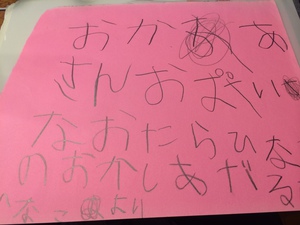 おかあ
さんおぱい
なおたらひな
のおかしあだる
なこより